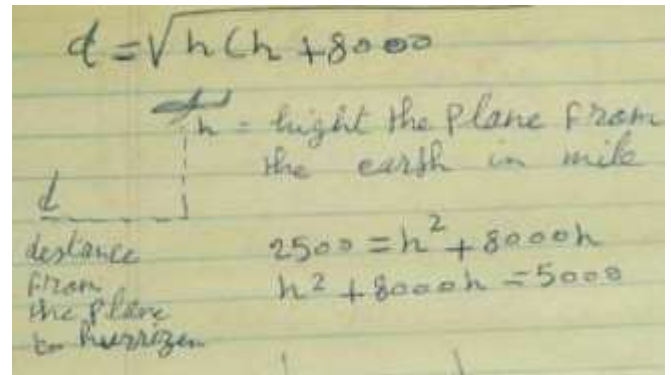 d = √h(h + 8000
h = hight the Plane from
the earth in mile
d
destance
from
the plane
to hurrizen
2500 = h² + 8000h
h² + 8000h = 5000